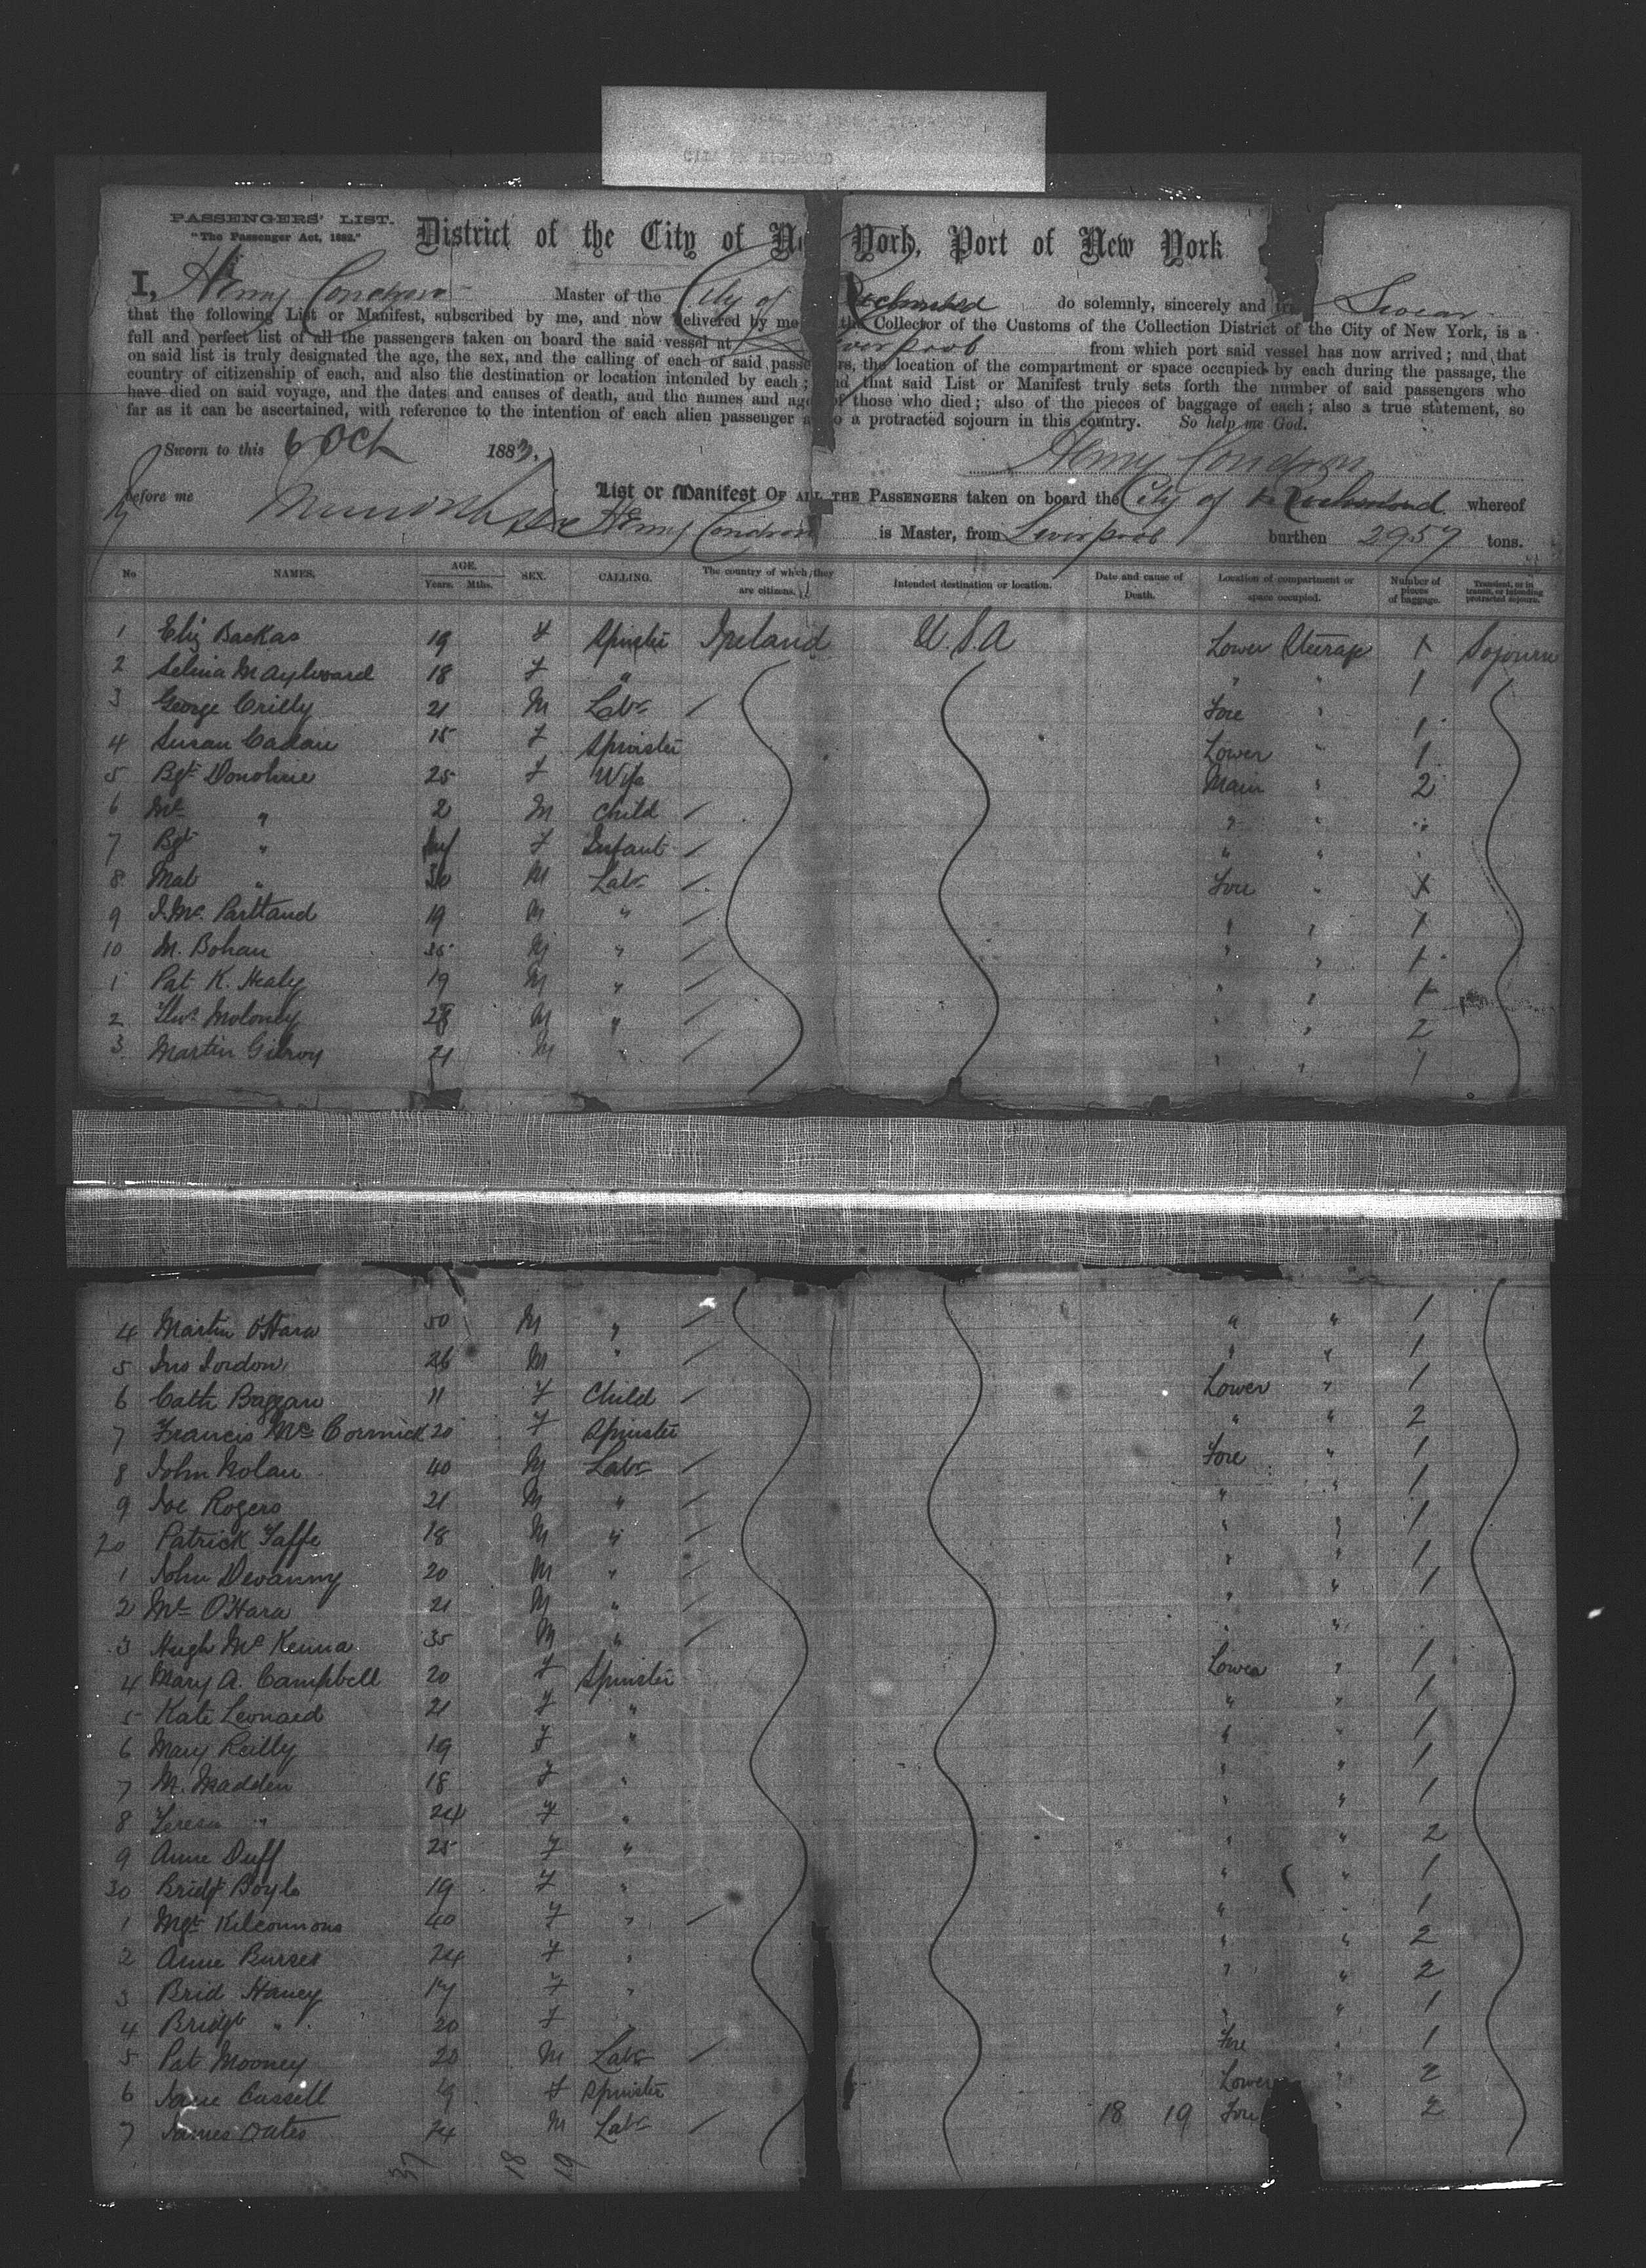 CITY OF RICHMOND
PASSENGERS' LIST.
"The Passenger Act, 1882."
District of the City of New York, Port of New York
I, Henry Condron Master of the City of Richmond do solemnly, sincerely and truly Swear
that the following List or Manifest, subscribed by me, and now delivered by me the Collector of the Customs of the Collection District of the City of New York, is a
full and perfect list of all the passengers taken on board the said vessel at Liverpool from which port said vessel has now arrived; and that
on said list is truly designated the age, the sex, and the calling of each of said passengers, the location of the compartment or space occupied by each during the passage, the
country of citizenship of each, and also the destination or location intended by each; and that said List or Manifest truly sets forth the number of said passengers who
have died on said voyage, and the dates and causes of death, and the names and ages of those who died; also of the pieces of baggage of each; also a true statement, so
far as it can be ascertained, with reference to the intention of each alien passenger as to a protracted sojourn in this country. So help me God.
Sworn to this 6 Oct 1883. Henry Condron
before me
List or Manifest OF ALL THE PASSENGERS taken on board the City of Richmond whereof
Henry Condron is Master, from Liverpool burthen 2957 tons.
No NAMES. AGE. Years. Mths. SEX. CALLING. The country of which they are citizens. Intended destination or location. Date and cause of Death. Location of compartment or space occupied. Number of pieces of baggage. Transient, or in transit, or intending protracted sojourn.
1 Eliz Backas 19 F Spinster Ireland U.S.A Lower Steerage 1 Sojourn
2 Selina M Aylward 18 F " " " 1
3 George Crilly 21 M Labr / Fore " 1
4 Susan Cadan 15 F Spinster Lower " 1
5 Bgt Donohue 25 F Wife Main " 2
6 Mt " 2 M Child / " "
7 Bgt " Inf F Infant / " "
8 Mat " 30 M Labr / Fore " 1
9 J. Mc Partland 19 M " / " " 1
10 M. Bohan 35 M " / " " 1
1 Pat K. Healy 19 M " / " " 1
2 Thos Moloney 28 M " / " " 2
3 Martin Gilroy 21 M " / " " 1
4 Martin O'Hara 50 M " / " " 1
5 Jno Jordon 26 M " / " " 1
6 Cath Baggan 11 F Child / Lower " 1
7 Francis Mc Cormick 20 F Spinster " " 2
8 John Nolan 40 M Labr / Fore " 1
9 Joe Rogers 21 M " / " " 1
20 Patrick Taffe 18 M " / " " 1
1 John Devanny 20 M " / " " 1
2 Mt O'Hara 21 M " / " " 1
3 Hugh Mc Kenna 35 M " / " "
4 Mary A. Campbell 20 F Spinster Lower " 1
5 Kate Leonard 21 F " " " 1
6 Mary Reilly 19 F " " " 1
7 M. Madden 18 F " " " 1
8 Teresa " 24 F " " " 1
9 Anne Duff 25 F " " " 2
30 Bridgt Boyle 19 F " " " 1
1 Mgt Kilconnons 40 F " / " " 1
2 Anne Burres 24 F " " " 2
3 Brid Haney 17 F " " " 2
4 Bridgt " 20 F " " " 1
5 Pat Mooney 20 M Labr / Fore " 1
6 Jane Cassell 19 F Spinster Lower " 2
7 James Oates 24 M Labr / 18 19 Fore " 2
37 18 19